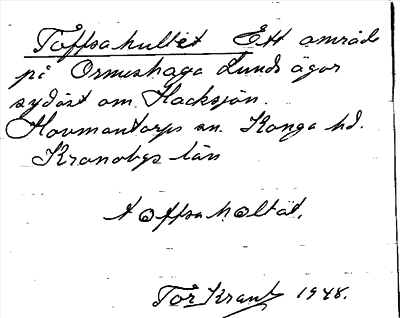 Toffsahultet Ett område
på Ormeshaga Lunds ägor
sydöst om Hacksjön.
Hovmantorps sn. Konga hd.
Kronobgs län
toffsahòltät.
Tor Krantz 1948.